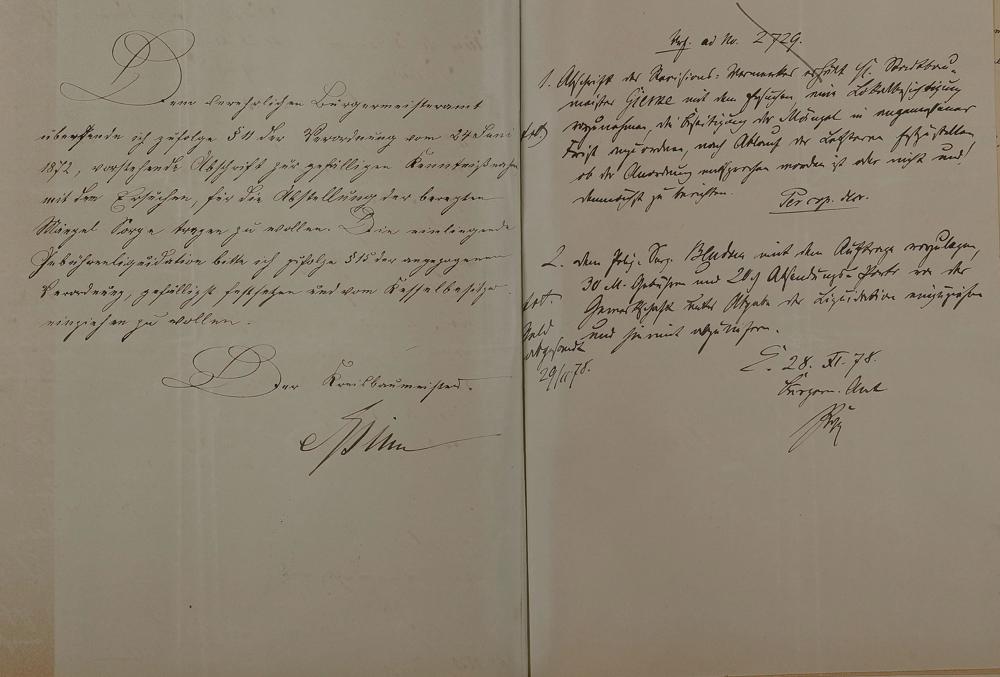 Dem verehrlichen Bürgermeisteramt
übersende ich zufolge § 11 der Verordnung vom 24. Juni
1872, vorstehende Abschrift zur gefälligen Kenntnißnahme
mit dem Ersuchen, für die Abstellung der beregten
Mängel Sorge tragen zu wollen. Die einliegende
Gebührenliquidation bitte ich zufolge § 15 der angezogenen
Verordnung, gefälligst festsetzen und vom Kesselbesitzer
einziehen zu wollen.
Der Kreisbaumeister.
ad No. 2729.
1. Abschrift des Revisions-Vermerkes erhält H. Stadtbau-
meister Gierke mit dem Ersuchen eine Lokalbesichtigung
vorzunehmen, die Beseitigung der Mängel in angemessener
Frist anzuordnen, nach Ablauf der Letzteren festzustellen
ob der Anordnung entsprochen worden ist oder nicht und
demnächst zu berichten.
2. dem Poliz. Serg. mit dem Auftrage vorzulegen,
30 M. Gebühren und 20 ₰ Absendungs-Porto von der
Gewerkschaft unter Abgabe der Liquidation einzuziehen
und hiermit abzuliefern.
Geld
abgesandt
29/11 78.
E. 28. XI. 78.
Bürgerm. Amt